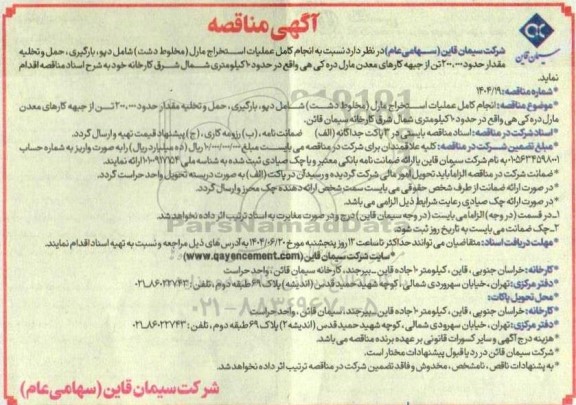 آگهی مناقصه
سیمان قاین
شرکت سیمان قاین (سهامی عام) در نظر دارد نسبت به انجام کامل عملیات استخراج مارل (مخلوط دشت) شامل دپو، بارگیری، حمل و تخلیه
مقدار حدود ۲۰۰.۰۰۰ تن از جبهه کارهای معدن مارل دره کی هی واقع در حدود ۱۰ کیلومتری شمال شرق کارخانه خود به شرح اسناد مناقصه اقدام
نماید.
* شماره مناقصه: ۱۴۰۴/۱۹
* موضوع مناقصه: انجام کامل عملیات استخراج مارل (مخلوط دشت) شامل دپو، بارگیری، حمل و تخلیه مقدار حدود ۲۰۰.۰۰۰ تن از جبهه کارهای معدن
مارل دره کی هی واقع در حدود ۱۰ کیلومتری شمال شرق کارخانه سیمان قائن.
* اسناد شرکت در مناقصه: اسناد مناقصه بایستی در ۳ پاکت جداگانه (الف) ضمانت نامه، (ب) رزومه کاری، (ج) پیشنهاد قیمت تهیه و ارسال گردد.
* مبلغ تضمین شرکت در مناقصه: کلیه علاقمندان برای شرکت در مناقصه می بایست مبلغ ۱۰.۰۰۰.۰۰۰.۰۰۰ ریال (ده میلیارد ریال) را به صورت واریز به شماره حساب
به نام شرکت سیمان قاین یا ارائه ضمانت نامه بانکی معتبر و یا چک صیادی ثبت شده به شناسه ملی ارائه نمایند.
* ضمانت شرکت در مناقصه الزاما باید تحویل امور مالی شرکت گردیده و رسید آن در پاکت (الف) به صورت دربسته تحویل واحد حراست گردد.
* در صورت ارائه ضمانت از طرف شخص حقوقی می بایست سمت شخص ارائه دهنده چک محرز و ارسال گردد.
* در صورت ارائه چک صیادی رعایت شرایط ذیل الزامی می باشد.
۱_ در قسمت (در وجه) الزاما می بایست (در وجه سیمان قاین) درج و در صورت مغایرت به اسناد ترتیب اثر داده نخواهد شد.
۲_ چک ضمانت می بایست به تاریخ روز ثبت شود.
* مهلت دریافت اسناد: متقاضیان می توانند حداکثر تا ساعت ۱۲ روز پنجشنبه مورخ ۱۴۰۴/۰۶/۲۰ به آدرس های ذیل مراجعه و نسبت به تهیه اسناد اقدام نمایند.
* سایت شرکت سیمان قاین (www.qayencement.com)
* کارخانه: خراسان جنوبی، قاین، کیلومتر ۱۰ جاده قاین _ بیرجند، کارخانه سیمان قائن، واحد حراست
* دفتر مرکزی: تهران، خیابان سهروردی شمالی، کوچه شهید حمید قدس (اندیشه) پلاک ۶۹ طبقه دوم، تلفن: ۸۶۰۲۲۷۴۳-۰۲۱
* محل تحویل پاکات:
* کارخانه: خراسان جنوبی، قاین، کیلومتر ۱۰ جاده قاین _ بیرجند، سیمان قائن، واحد حراست
* دفتر مرکزی: تهران، خیابان سهروردی شمالی، کوچه شهید حمید قدس (اندیشه ۲) پلاک ۶۹ طبقه دوم، تلفن: ۸۶۰۲۲۷۴۳-۰۲۱
* هزینه درج آگهی و سایر کسورات قانونی بر عهده برنده مناقصه می باشد.
* شرکت سیمان قائن در رد یا قبول پیشنهادات مختار است.
* به پیشنهادات ناقص، نامشخص، مخدوش و فاقد تضمین شرکت در مناقصه ترتیب اثر داده نخواهد شد.
شرکت سیمان قاین (سهامی عام)
ParsNamadData
۰۲۱-۸۸۳۴۹۶۷۰-۵